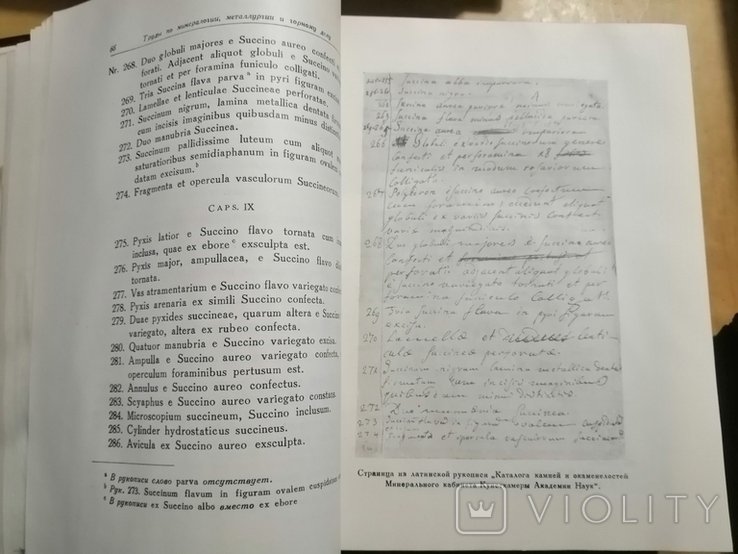 68 Труды по минералогии, металлургии и горному делу
Nr. 268. Duo globuli majores e Succino aureo confecti
forati. Adjacent aliquot globuli e Succino
tornati et per foramina funiculo colligati.
269. Tria Succina flava parva a in pyri figuram exc
270. Lamellae et lenticulae Succineae perforatae.
271. Succinum nigrum, lamina metallica dentata
cum incisis imaginibus quibusdam minus distin
272. Duo manubria Succinea.
273. Succinum pallidissime luteum cum aliquot
saturatioribus semidiaphanum in figuram ovalem
datam excisum. b
274. Fragmenta et opercula vasculorum Succineor
CAPS. IX
275. Pyxis latior e Succino flavo tornata cum
inclusa, quae ex ebore c exsculpta est.
276. Pyxis major, ampullacea, e Succino flavo
tornata.
277. Vas atramentarium e Succino flavo variegato
278. Pyxis arenaria ex simili Succino confecta.
279. Duae pyxides succineae, quarum altera e Succ
variegato, altera ex rubeo confecta.
280. Quatuor manubria e Succino variegato excisa.
281. Ampulla e Succino aureo variegato confecta,
operculum foraminibus pertusum est.
282. Annulus e Succino aureo confectus.
283. Scyaphus e Succino aureo variegato constans.
284. Microscopium succineum, Succino inclusum.
285. Cylinder hydrostaticus succineus.
286. Avicula ex Succino aureo exsculpta.
a В рукописи слово parva отсутствует.
b Рук. 273. Succinum flavum in figuram ovalem cuspidatam
c В рукописи ex Succino albo вместо ex ebore
Succina alba impuriora.
Succina nigra.
A
262 Succina aurea puriora
263 Succina flava minus pellucida puriora
Succina aurea impuriora
266 Globuli ex variis succinorum genere
confecti et per foramina 28
funiculis in modum rotariorum
colligati.
267 e succino aureo confectum
cum foramine, adjacent aliquot
globuli ex variis succinis confecti
variæ magnitudinis.
268 Duo globuli majores è succino aureo
confecti et
perforati adjacent aliquot globuli
è succino variegato tornati et per
foramina funiculo colligati.
269 Tria succina flava in pyri figuram
excisa.
270 Lamellæ et lenti-
culæ succineæ perforatæ.
271 Succinum nigrum lamina metallica
cum incisis imaginibus
quibusdam minus distinctis
272 Duo manubria succinea.
273 Succinum flavum in figuram ovalem
274 Fragmenta et opercula vasculorum succineor
Страница из латинской рукописи „Каталога камней и окаменелостей
Минерального кабинета Кунсткамеры Академии Наук".
VIOLITY